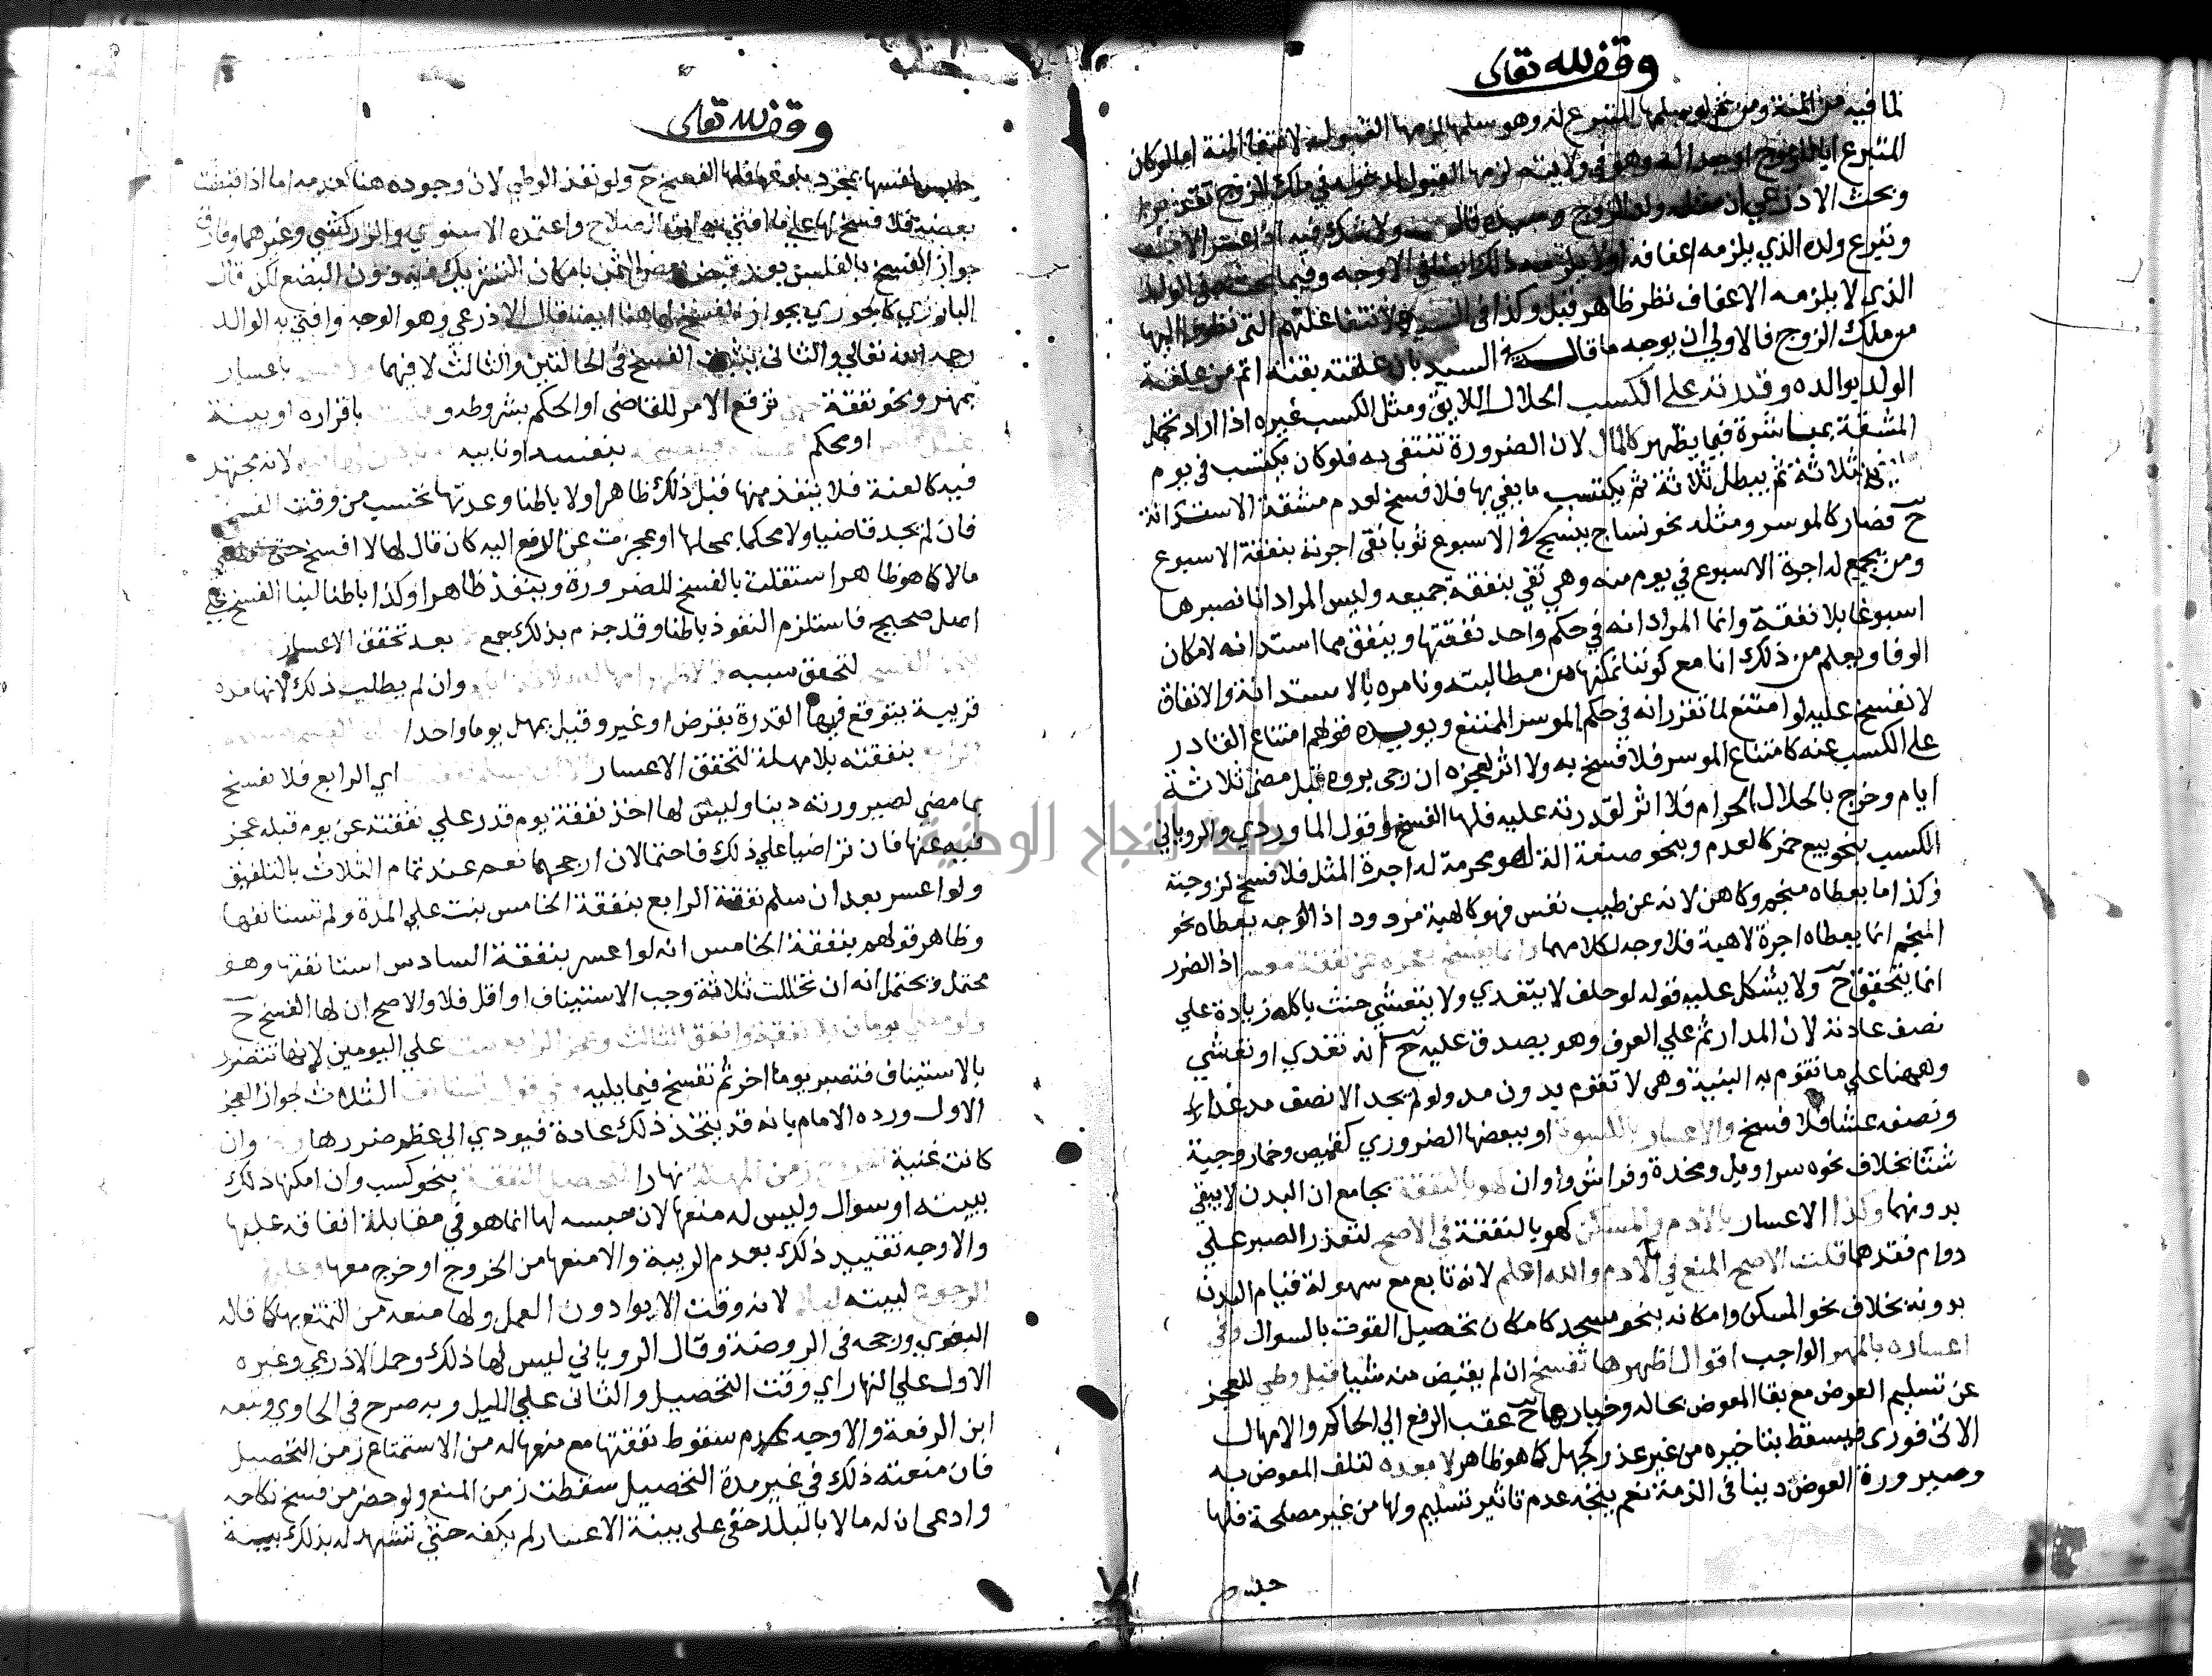 وقف لله تعالى
لما فيه من المنة ومن ثم لو سلمها المتبرع له وهو سلمها لزمها القبول لانتفا المنة اما لو كان
المتبرع ابا للزوج او جدا له وهو في ولايته لزمها القبول لدخوله في ملك الزوج تقديرا
وبحث الاذرعي ان مثله ولد الزوج وسيده قال ولا شك فيه اذا اعسر الاب
وتبرع ولده الذي يلزمه اعفافه او لا يلزمه ذلك ايضا في الاوجه وفيما بحثه في الولد
الذي لا يلزمه الاعفاف نظر ظاهر قيل وكذا في السيد لانتفا علتهم التي نظروا اليها
من ملك الزوج فالاولى ان يوجه ما قاله في السيد بان علقته بقنه اتم من علقة
الولد بوالده وقدرته على الكسب الحلال اللايق ومثل الكسب غيره اذا اراد تحمل
المشقة بمباشرة فيما يظهر كالمال لان الضرورة تنتفى به فلو كان يكتسب في يوم
ثلاثة ثم يبطل ثلاثة ثم يكتسب ما يفي بها فلا فسخ لعدم مشقة الاستدانة
ح فصار كالموسر ومثله نحو نساج ينسج في الاسبوع ثوبا تفي اجرته بنفقة الاسبوع
ومن يجمع له اجرة الاسبوع في يوم منه وهي تفي بنفقة جميعه وليس المراد انا نصبرها
اسبوعا بلا نفقة وانما المراد انه في حكم واحد نفقتها وينفق مما استدانه لامكان
الوفا ويعلم من ذلك انا مع كوننا نمكنها من مطالبته ونامره بالاستدانة والانفاق
لا نفسخ عليه لو امتنع لما تقرر انه في حكم الموسر الممتنع ويويده قولهم امتناع القادر
على الكسب عنه كامتناع الموسر فلا فسخ به ولا اثر لعجزه ان رجى بروه قبل مضى ثلاثة
ايام وخرج بالحلال الحرام فلا اثر لقدرته عليه فلها الفسخ وقول الماوردي والروياني
الكسب بنحو بيع خمر كالعدم وبنحو صنعة الة لهو محرمة له اجرة المثل فلا فسخ لزوجته
وكذا ما يعطاه منجم وكاهن لانه عن طيب نفس فهو كالهبة مردود اذ الوجه يعطاه نحو
المنجم انما يعطاه اجرة لا هبة فلا وجه لكلامهما وانما يفسخ بعجزه عن نفقة معسر اذ الضرر
انما يتحقق ح ولا يشكل عليه قوله لو حلف لا يتغدي ولا يتعشي حنث باكله زيادة علي
نصف عادته لان المدار ثم علي العرف وهو يصدق عليه ح انه تغدي او تعشي
وههنا علي ما تقوم به البنية وهي لا تقوم بدون مد ولو لم يجد الا نصف مد غداء
ونصفه عشا فلا فسخ والاعسار بالكسوة او ببعضها الضروري كقميص وخمار وجبة
شتا بخلاف نحو سراويل ومخدة وفراش واوان كهو بالنفقة بجامع ان البدن لا يبقي
بدونهما وكذا الاعسار بالادم والمسكن كهو بالنفقة في الاصح لتعذر الصبر علي
دوام فقدهما قلت الاصح المنع في الادم والله اعلم لانه تابع مع سهولة قيام البدن
بدونه بخلاف نحو المسكن وامكانه بنحو مسجد كامكان تحصيل القوت بالسوال وفي
اعساره بالمهر الواجب اقوال اظهرها تفسخ ان لم يقبض منه شيا قبل وطي للعجز
عن تسليم العوض مع بقا المعوض بحاله وخيارها ح عقب الرفع الي الحاكم والامهال
الاتى فورى فيسقط بتاخيره من غير عذر كجهل كما هو ظاهر لا بعده لتلف المعوض به
وصيرورة العوض دينا في الذمة نعم يتجه عدم تاثير تسليم وليها من غير مصلحة فلها
حبسه
وقف لله تعالى
حبس نفسها بمجرد بلوغها فلها الفسخ ح ولو نفذ الوطي لان وجوده هنا كعدمه اما اذا قبضت
بعضه فلا فسخ لها على ما افتى به ابن الصلاح واعتمده الاسنوي والزركشي وغيرهما وفارق
جواز الفسخ بالفلس بعد قبض بعض الثمن بامكان التشريك فيه دون البضع لكن قال
البارزي كالجوري بجواز الفسخ لها هنا ايضا قال الاذرعي وهو الوجه وافتى به الوالد
رحمه الله تعالي والثاني يثبت الفسخ في الحالتين والثالث لا فيهما ولا فسخ باعسار
بمهر ونحو نفقة حتى ترفع الامر للقاضى او الحكم بشروطه و باقراره او بينة
او محكم بنفسه او نايبه لانه مجتهد
فيه كالعنة فلا ينفذ منها قبل ذلك ظاهرا ولا باطنا وعدتها تحتسب من وقت الفسخ
فان لم يجد قاضيا ولا محكما بمحلها او عجزت عن الرفع اليه كان قال لها لا افسخ حتى تعطيني
مالا كما هو ظاهر استقلت بالفسخ للضرورة وينفذ ظاهرا وكذا باطنا لبنا الفسخ على
اصل صحيح فاستلزم النفوذ باطنا وقد جزم بذلك جمع بعد تحقق الاعسار
لتحقق سببه والاظهر امهاله ثلاثة ايام وان لم يطلب ذلك لانها مدة
قريبة يتوقع فيها القدرة بقرض او غير وقيل يمهل يوما واحدا
بنفقته بلا مهلة لتحقق الاعسار الا ان يسلم نفقته اي الرابع فلا نفسخ
بما مضى لصيرورته دينا وليس لها اخذ نفقة يوم قدر علي نفقته عن يوم قبله عجز
فيه عنها فان تراضيا علي ذلك فاحتمالان ارجحهما نعم عند تمام الثلاث بالتلفيق
ولو اعسر بعد ان سلم نفقة الرابع بنفقة الخامس بنت علي المدة ولم تستانفها
وظاهر قولهم بنفقة الخامس انه لو اعسر بنفقة السادس استانفتها وهو
محتمل ويحتمل انه ان تخللت ثلاثة وجب الاستيناف او اقل فلا والاصح ان لها الفسخ ح
ولو مضي يومان بلا نفقة وانفق الثالث وعجز الرابع بنت علي اليومين لانها تتضرر
بالاستيناف فتصبر يوما اخر ثم تفسخ فيما يليه وفي قول تستانف الثلاث لجواز العجز
الاول ورده الامام بانه قد يتخذ ذلك عادة فيودي الى عظم ضررها وان
كانت غنية الخروج زمن المهلة نهارا لتحصيل النفقة بنحو كسب وان امكنها ذلك
ببيته او سوال وليس له منعها لان حبسه لها انما هو في مقابلة انفاقه عليها
والاوجه تقييد ذلك بعدم الريبة والا منعها من الخروج او خرج معها وعليها
الرجوع لبيته ليلا لانه وقت الايوا دون العمل ولها منعه من التمتع بها كما قاله
البغوي ورجحه في الروضة وقال الروياني ليس لها ذلك وحمل الاذرعي وغيره
الاول علي النهار اي وقت التحصيل والثاني علي الليل وبه صرح في الحاوي وتبعه
ابن الرفعة والاوجه عدم سقوط نفقتها مع منعها له من الاستمتاع زمن التحصيل
فان منعته ذلك في غير مدة التحصيل سقطت زمن المنع ولو حضر من فسخ نكاحه
وادعى ان له مالا بالبلد خفي علي بينة الاعسار لم يكفه حتى تشهد له بذلك بينة
جامعة النجاح الوطنية